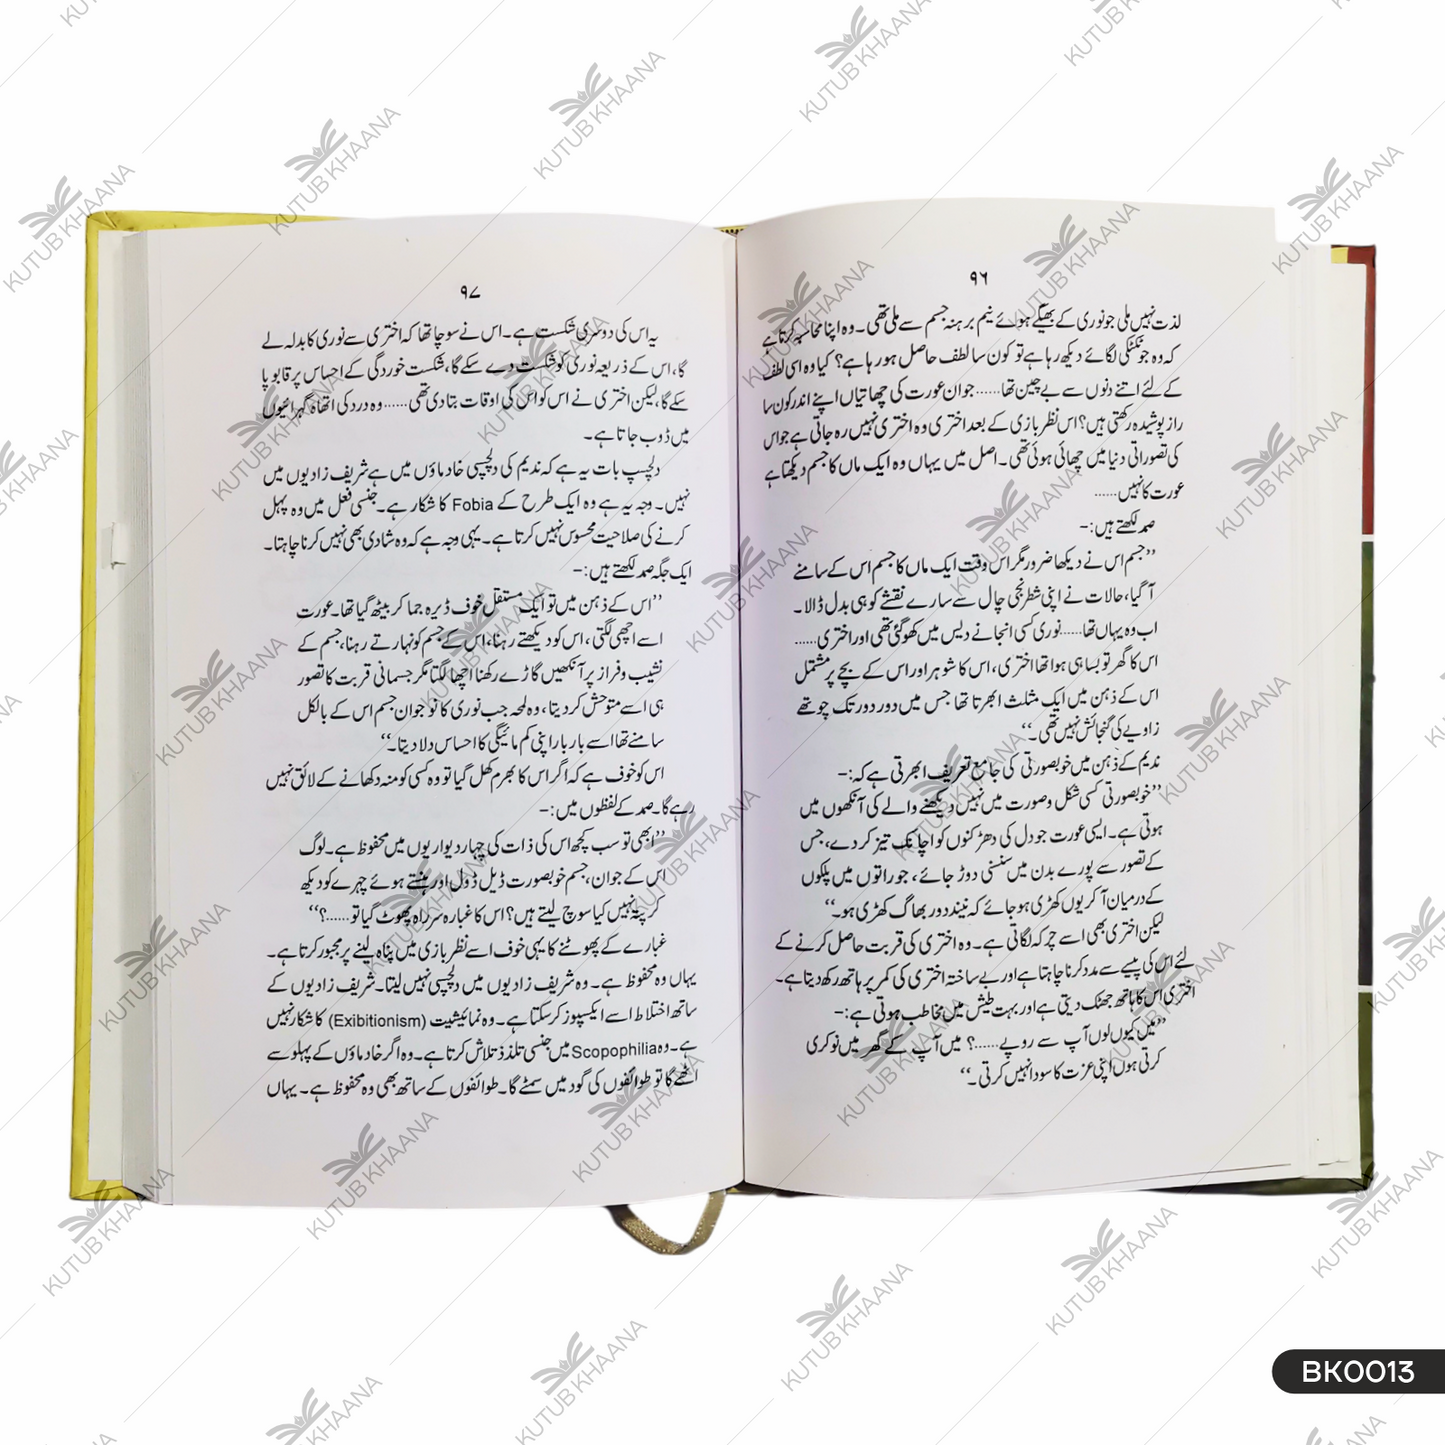 ۹۶
لذت نہیں ملی جو نوری کے بھیگے ہوئے نیم برہنہ جسم سے ملی تھی۔ وہ اپنا محاسبہ کرتا ہے
کہ وہ جو ٹکٹکی لگائے دیکھ رہا ہے تو کون سا لطف حاصل ہو رہا ہے؟ کیا وہ اسی لطف
کے لئے اتنے دنوں سے بے چین تھا......جوان عورت کی چھاتیاں اپنے اندر کون سا
راز پوشیدہ رکھتی ہیں؟ اس نظر بازی کے بعد اختری وہ اختری نہیں رہ جاتی ہے جو اس
کی تصوراتی دنیا میں چھائی ہوئی تھی۔ اصل میں یہاں وہ ایک ماں کا جسم دیکھتا ہے
عورت کا نہیں......
صمد لکھتے ہیں:–
’’جسم اس نے دیکھا ضرور مگر اس وقت ایک ماں کا جسم اس کے سامنے
آ گیا، حالات نے اپنی شطرنجی چال سے سارے نقشے کو ہی بدل ڈالا۔
اب وہ یہاں تھا......نوری کسی انجانے دیس میں کھو گئی تھی اور اختری......
اس کا گھر تو بسا ہی ہوا تھا اختری، اس کا شوہر اور اس کے بچے پر مشتمل
اس کے ذہن میں ایک مثلث ابھرتا تھا جس میں دور دور تک چوتھے
زاویے کی گنجائش نہیں تھی۔‘‘
ندیم کے ذہن میں خوبصورتی کی جامع تعریف ابھرتی ہے کہ:–
’’خوبصورتی کسی شکل و صورت میں نہیں دیکھنے والے کی آنکھوں میں
ہوتی ہے۔ ایسی عورت جو دل کی دھڑکنوں کو اچانک تیز کر دے، جس
کے تصور سے پورے بدن میں سنسنی دوڑ جائے، جو راتوں میں پلکوں
کے درمیان آ کر یوں کھڑی ہو جائے کہ نیند دور بھاگ کھڑی ہو۔‘‘
لیکن اختری بھی اسے چرکہ لگاتی ہے۔ وہ اختری کی قربت حاصل کرنے کے
لئے اس کی پیسے سے مدد کرنا چاہتا ہے اور بے ساختہ اختری کی کمر پر ہاتھ رکھ دیتا ہے۔
اختری اس کا ہاتھ جھٹک دیتی ہے اور بہت طیش میں مخاطب ہوتی ہے:–
’’میں کیوں لوں آپ سے روپے......؟ میں آپ کے گھر میں نوکری
کرتی ہوں اپنی عزت کا سودا نہیں کرتی۔‘‘
۹۷
یہ اس کی دوسری شکست ہے۔ اس نے سوچا تھا کہ اختری سے نوری کا بدلہ لے لے
گا، اس کے ذریعہ نوری کو شکست دے سکے گا، شکست خوردگی کے احساس پر قابو پا
سکے گا، لیکن اختری نے اس کو اس کی اوقات بتا دی تھی......وہ درد کی اتھاہ گہرائیوں
میں ڈوب جاتا ہے۔
دلچسپ بات یہ ہے کہ ندیم کی دلچسپی خادماؤں میں ہے شریف زادیوں میں
نہیں۔ وجہ یہ ہے وہ ایک طرح کے Fobia کا شکار ہے۔ جنسی فعل میں وہ پہل
کرنے کی صلاحیت محسوس نہیں کرتا ہے۔ یہی وجہ ہے کہ وہ شادی بھی نہیں کرنا چاہتا۔
ایک جگہ صمد لکھتے ہیں:–
’’اس کے ذہن میں تو ایک مستقل خوف ڈیرہ جما کر بیٹھ گیا تھا۔ عورت
اسے اچھی لگتی، اس کو دیکھتے رہنا، اس کے جسم کو نہارتے رہنا، جسم کے
نشیب و فراز پر آنکھیں گاڑے رکھنا اچھا لگتا مگر جسمانی قربت کا تصور
ہی اسے متوحش کر دیتا، وہ لمحہ جب نوری کا نوجوان جسم اس کے بالکل
سامنے تھا اسے بار بار اپنی کم مائیگی کا احساس دلا دیتا۔‘‘
اس کو خوف ہے کہ اگر اس کا بھرم کھل گیا تو وہ کسی کو منہ دکھانے کے لائق نہیں
رہے گا۔ صمد کے لفظوں میں:–
’’ابھی تو سب کچھ اس کی ذات کی چہار دیواریوں میں محفوظ ہے۔ لوگ
اس کے جوان، جسم خوبصورت ڈیل ڈول اور ہنستے ہوئے چہرے کو دیکھ
کر پتہ نہیں کیا سوچ لیتے ہیں؟ اس کا غبارہ سر راہ پھوٹ گیا تو......؟‘‘
غبارے کے پھوٹنے کا یہی خوف اسے نظر بازی میں پناہ لینے پر مجبور کرتا ہے۔
یہاں وہ محفوظ ہے۔ وہ شریف زادیوں میں دلچسپی نہیں لیتا۔ شریف زادیوں کے
ساتھ اختلاط اسے ایکسپوز کر سکتا ہے۔ وہ نمائیشیت (Exibitionism) کا شکار نہیں
ہے۔ وہ Scopophilia میں جنسی تلذذ تلاش کرتا ہے۔ وہ اگر خادماؤں کے پہلو سے
اٹھے گا تو طوائفوں کی گود میں سمٹے گا۔ طوائفوں کے ساتھ بھی وہ محفوظ ہے۔ یہاں
KUTUB KHAANA
BK0013